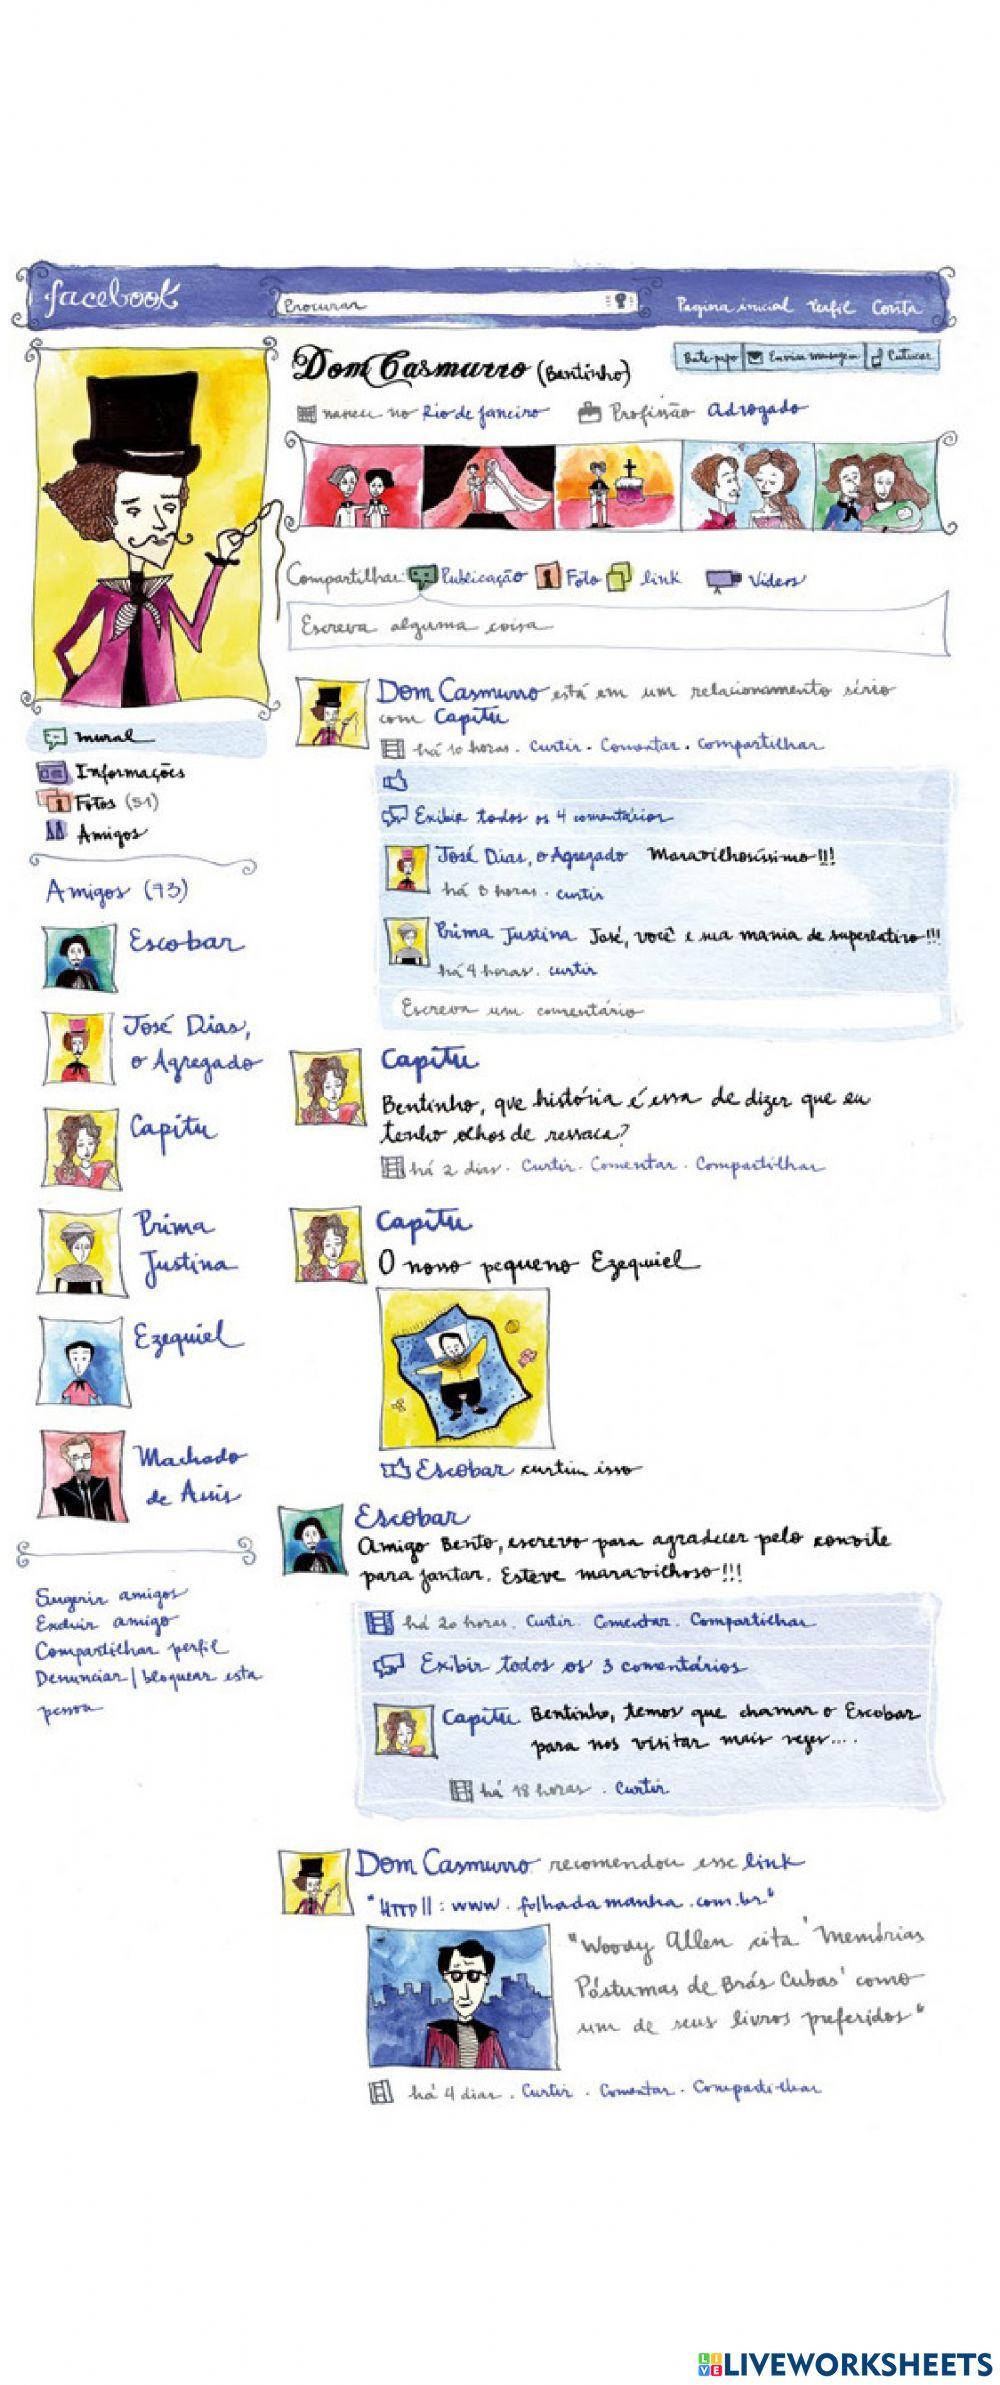 facebook
Procurar
Pagina inicial Perfil Conta
Dom Casmurro (Bentinho)
Bate-papo Enviar mensagem Cutucar
nasceu no Rio de Janeiro Profissão Advogado
Compartilhar: Publicação Foto link Vídeos
Escreva alguma coisa
mural
Informações
Fotos (51)
Amigos
Amigos (73)
Escobar
José Dias,
o Agregado
Capitu
Prima
Justina
Ezequiel
Machado
de Assis
Sugerir amigos
Excluir amigo
Compartilhar perfil
Denunciar/bloquear esta
pessoa
Dom Casmurro está em um relacionamento sério
com Capitu
há 10 horas. Curtir. Comentar. Compartilhar
Exibir todos os 4 comentários
José Dias, o Agregado Maravilhosíssimo!!!
há 8 horas. curtir
Prima Justina José, você e sua mania de superlativo!!!
há 4 horas. curtir
Escreva um comentário
Capitu
Bentinho, que história é essa de dizer que eu
tenho olhos de ressaca?
há 2 dias. Curtir. Comentar. Compartilhar
Capitu
O nosso pequeno Ezequiel
Escobar curtiu isso
Escobar
Amigo Bento, escrevo para agradecer pelo convite
para jantar. Esteve maravilhoso!!!
há 20 horas. Curtir. Comentar. Compartilhar
Exibir todos os 3 comentários
Capitu Bentinho, temos que chamar o Escobar
para nos visitar mais vezes....
há 18 horas. Curtir
Dom Casmurro recomendou esse link
"HTTP||:www.folhadamanha.com.br"
"Woody Allen cita 'Memórias
Póstumas de Brás Cubas' como
um de seus livros preferidos"
há 4 dias. Curtir. Comentar. Compartilhar
LIVEWORKSHEETS